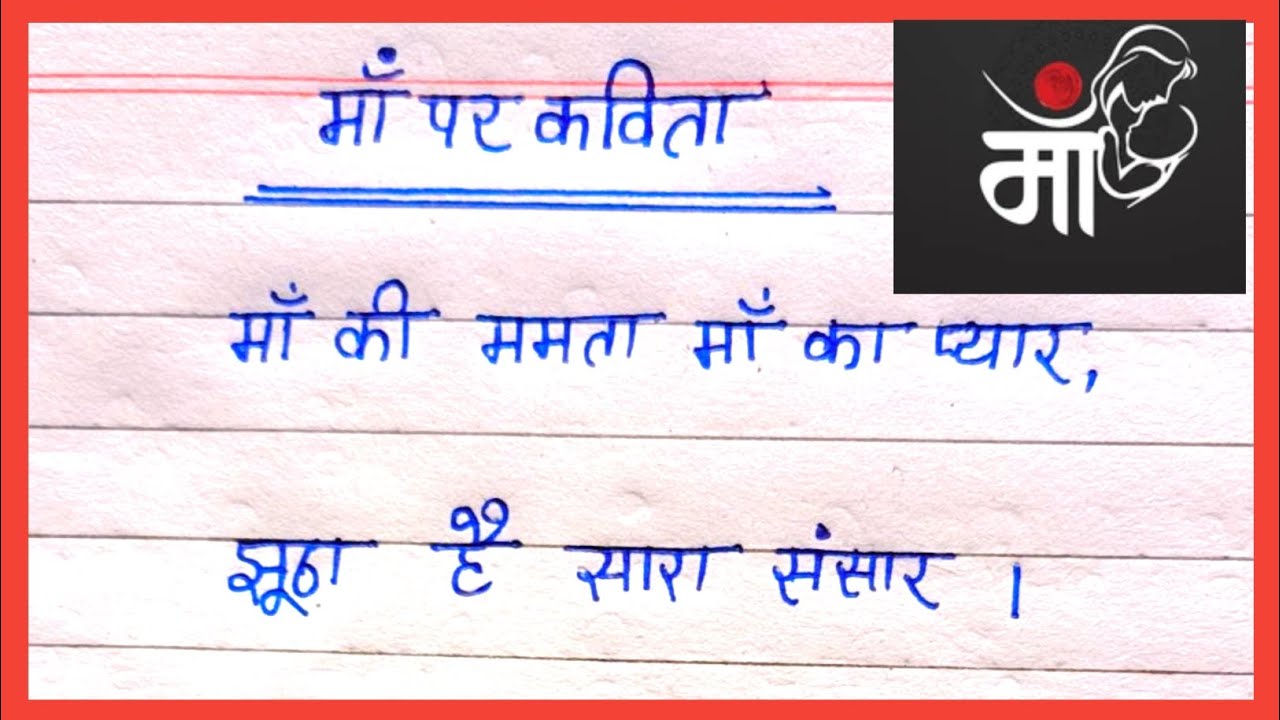 माँ पर कविता
माँ
माँ की ममता माँ का प्यार,
झूठा है सारा संसार ।